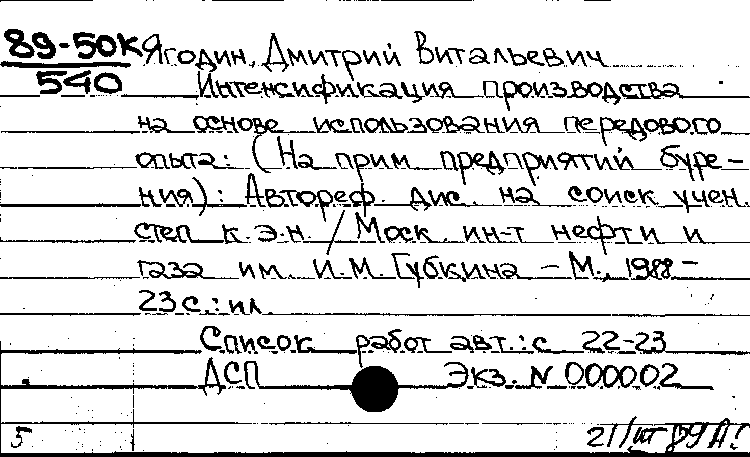 89-50К Ягодин, Дмитрий Витальевич
540 Интенсификация производства
на основе использования передового
опыта: (На прим предприятий буре-
ния): Автореф. дис. на соиск учен.
степ к.э.н. / Моск. ин-т нефти и
газа им. И.М. Губкина – М., 1988 –
23 с.: ил.
Список работ авт.: с 22-23
ДСП Экз. N 000002
5 21/III 89